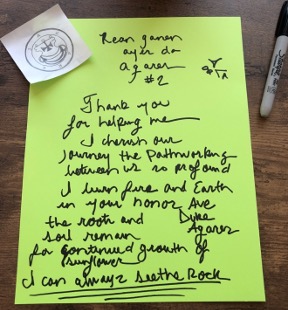 Rean ganen
ayar da
Agares
#2
Thank you
for helping me
I cherish our
Journey the Pathworking
between us so profound
I burn fire and Earth
in your honor Ave
the roots and Duke
soil remain Agares
for continued growth of
sunflower
I can always see the Rock